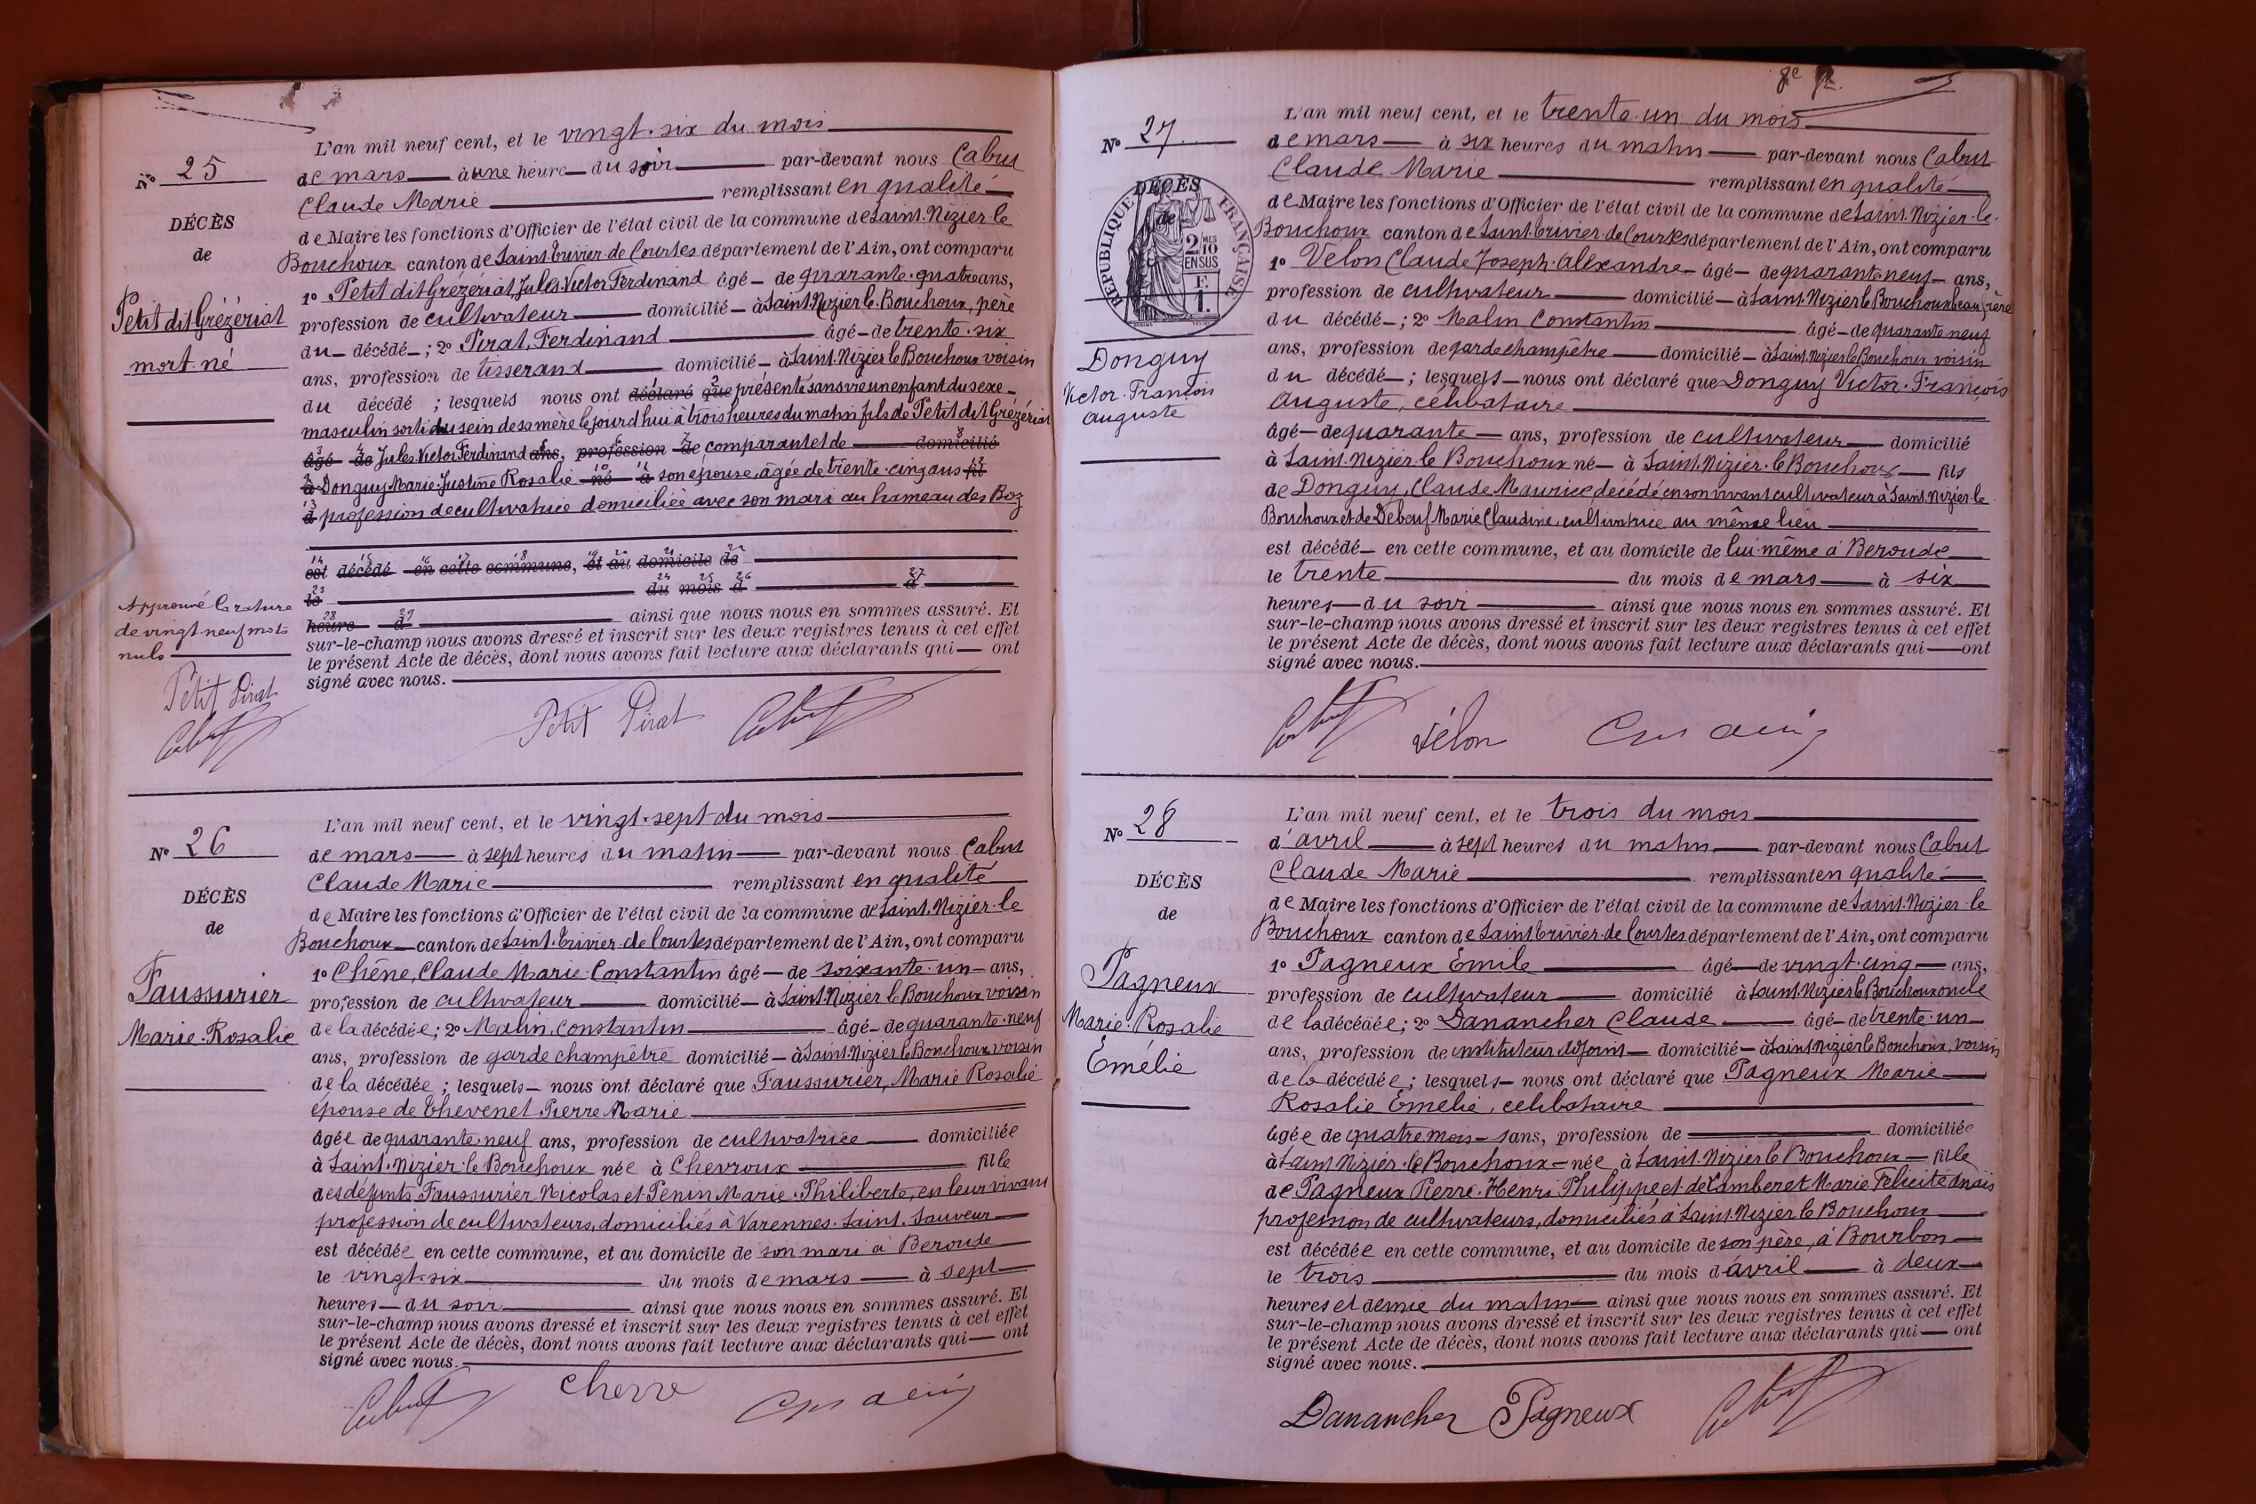 L'an mil neuf cent, et le vingt-six du mois
No 25
de mars à une heure du soir par-devant nous Cabut
Claude Marie remplissant en qualité
DÉCÈS
de Maire les fonctions d'Officier de l'état civil de la commune de Saint-Nizier-le
de
Bouchoux canton de Saint-Trivier-de-Courtes département de l'Ain, ont comparu
1o Petit dit Grézériat Jules Victor Ferdinand âgé de quarante-quatre ans,
Petit dit Grézériat
profession de cultivateur domicilié à Saint Nizier le Bouchoux, père
du décédé ; 2o Pirat, Ferdinand âgé de trente-six
mort-né
ans, profession de tisserand domicilié à Saint Nizier le Bouchoux voisin
du décédé ; lesquels nous ont déclaré que présenté sans vie un enfant du sexe
masculin sorti du sein de sa mère le jourd'hui à trois heures du matin fils de Petit dit Grézériat
âgé de Jules Victor Ferdinand ans, profession de comparant et de domicilié
à Donguy Marie-Justine Rosalie né à son épouse, âgée de trente-cinq ans fil
d profession de cultivatrice domiciliée avec son mari au hameau des Boz
est décédé en cette commune, et au domicile de
le du mois d à
Approuvé la rature
de vingt-neuf mots
nuls
heure d ainsi que nous nous en sommes assuré. Et
sur-le-champ nous avons dressé et inscrit sur les deux registres tenus à cet effet
le présent Acte de décès, dont nous avons fait lecture aux déclarants qui ont
signé avec nous.
Petit Pirat
Cabut
Petit Pirat Cabut
L'an mil neuf cent, et le vingt-sept du mois
No 26
de mars à sept heures du matin par-devant nous Cabut
Claude Marie remplissant en qualité
DÉCÈS
de Maire les fonctions d'Officier de l'état civil de la commune de Saint-Nizier-le
de
Bouchoux canton de Saint-Trivier-de-Courtes département de l'Ain, ont comparu
1o Chêne, Claude Marie Constantin âgé de soixante-un ans,
Faussurier
profession de cultivateur domicilié à Saint Nizier le Bouchoux voisin
Marie-Rosalie
de la décédée; 2o Malin, Constantin âgé de quarante-neuf
ans, profession de garde champêtre domicilié à Saint Nizier le Bouchoux, voisin
de la décédée ; lesquels nous ont déclaré que Faussurier, Marie Rosalie
épouse de Thevenet Pierre Marie
âgée de quarante-neuf ans, profession de cultivatrice domiciliée
à Saint-Nizier-le Bouchoux née à Chevroux fille
des défunts Faussurier Nicolas et Penin Marie-Philiberte, en leur vivant
profession de cultivateurs, domiciliés à Varennes-Saint-Sauveur
est décédée en cette commune, et au domicile de son mari à Beroude
le vingt-six du mois de mars à sept
heures du soir ainsi que nous nous en sommes assuré. Et
sur-le-champ nous avons dressé et inscrit sur les deux registres tenus à cet effet
le présent Acte de décès, dont nous avons fait lecture aux déclarants qui ont
signé avec nous.
Cabut Chene
L'an mil neuf cent, et le trente-un du mois
No 27
de mars à six heures du matin par-devant nous Cabut
Claude Marie remplissant en qualité
DÉCÈS
de
RÉPUBLIQUE FRANÇAISE
2/10 EN SUS
F. 1.
de Maire les fonctions d'Officier de l'état civil de la commune de Saint-Nizier-le
Bouchoux canton de Saint-Trivier-de-Courtes département de l'Ain, ont comparu
1o Velon Claude Joseph-Alexandre âgé de quarante neuf ans,
profession de cultivateur domicilié à Saint-Nizier le Bouchoux beau frère
du décédé ; 2o Malin Constantin âgé de quarante neuf
ans, profession de garde champêtre domicilié à Saint-Nizier le Bouchoux voisin
Donguy
Victor-François
Auguste
du décédé ; lesquels nous ont déclaré que Donguy Victor-François
Auguste, célibataire
âgé de quarante ans, profession de cultivateur domicilié
à Saint-Nizier le Bouchoux né à Saint-Nizier-le Bouchoux fils
de Donguy, Claude Maurice décédé en son vivant cultivateur à Saint-Nizier-le
Bouchoux et de Debeuf Marie Claudine, cultivatrice au même lieu
est décédé en cette commune, et au domicile de lui-même à Beroude
le trente du mois de mars à six
heures du soir ainsi que nous nous en sommes assuré. Et
sur-le-champ nous avons dressé et inscrit sur les deux registres tenus à cet effet
le présent Acte de décès, dont nous avons fait lecture aux déclarants qui ont
signé avec nous.
Cabut Vélon
L'an mil neuf cent, et le trois du mois
No 28
d'avril à sept heures du matin par-devant nous Cabut
Claude Marie remplissant en qualité
DÉCÈS
de Maire les fonctions d'Officier de l'état civil de la commune de Saint-Nizier-le
de
Bouchoux canton de Saint Trivier-de Courtes département de l'Ain, ont comparu
1o Pagneux Emile âgé de vingt-cinq ans,
Pagneux
profession de cultivateur domicilié à Saint Nizier le Bouchoux oncle
Marie-Rosalie
de la décédée; 2o Danancher Claude âgé de trente-un
Emélie
ans, profession de instituteur adjoint domicilié à Saint Nizier le Bouchoux, voisin
de la décédée; lesquels nous ont déclaré que Pagneux Marie
Rosalie Emélie, célibataire
âgée de quatre mois ans, profession de domiciliée
à Saint Nizier-le Bouchoux née à Saint-Nizier le Bouchoux fille
de Pagneux Pierre-Henri Philippe et de Camberet Marie Félicité Anaïs
profession de cultivateurs, domiciliés à Saint-Nizier le Bouchoux
est décédée en cette commune, et au domicile de son père, à Bourbon
le trois du mois d'avril à deux
heures et demie du matin ainsi que nous nous en sommes assuré. Et
sur-le-champ nous avons dressé et inscrit sur les deux registres tenus à cet effet
le présent Acte de décès, dont nous avons fait lecture aux déclarants qui ont
signé avec nous.
Danancher Pagneux Cabut